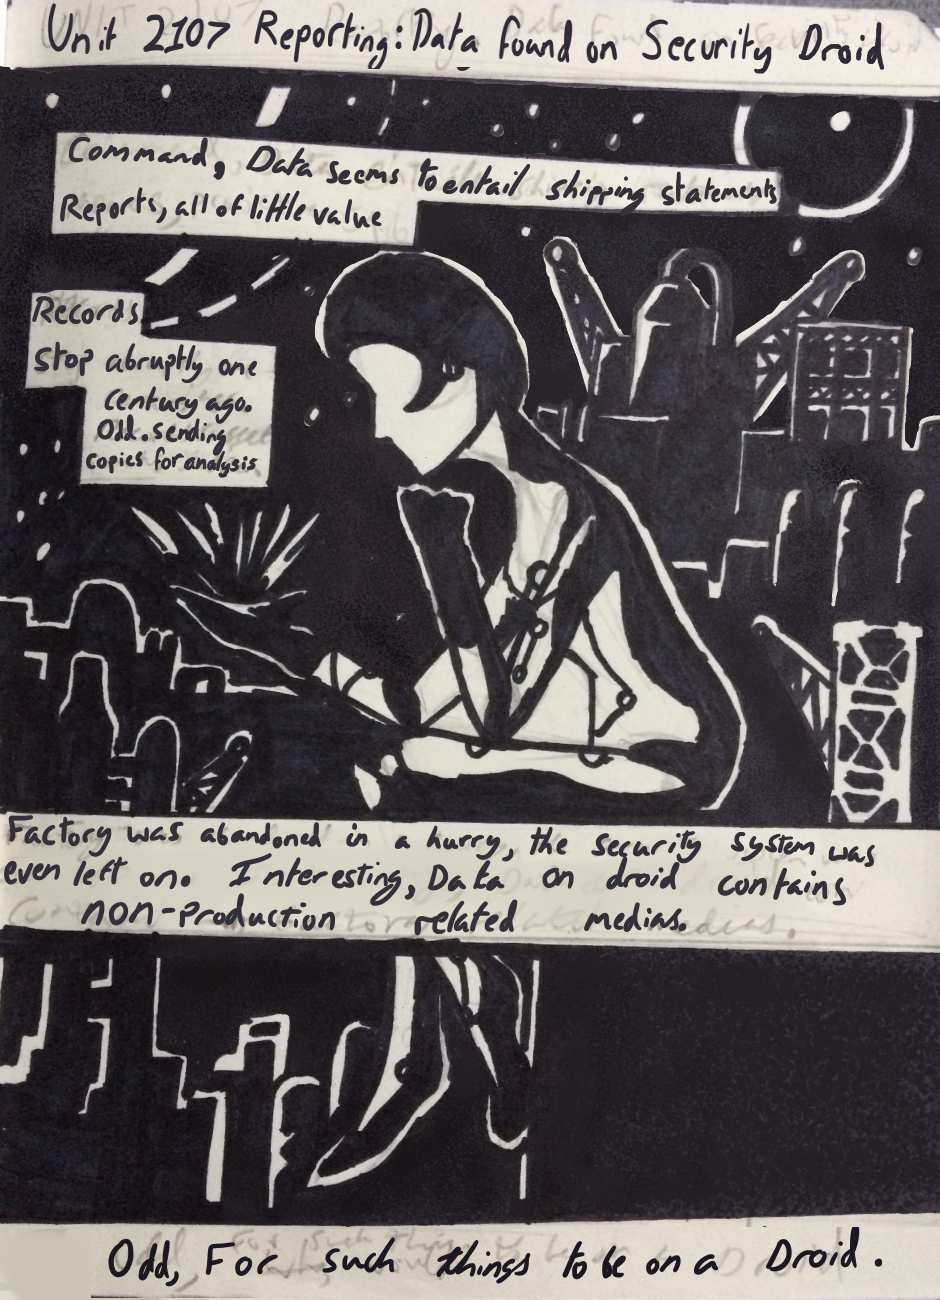 Unit 2107 Reporting: Data found on Security Droid
Command, Data seems to entail shipping statements
Reports, all of little value
Records
stop abruptly one
century ago.
Odd. sending
copies for analysis
Factory was abandoned in a hurry, the security system was
even left on. Interesting, Data on droid contains
non-production related medias.
Odd, For such things to be on a Droid.